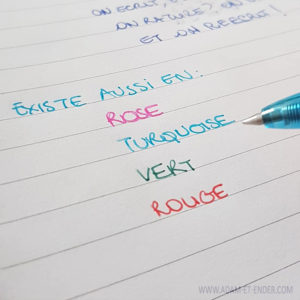 ON ÉCRIT,
ON RATURE, ON
ET ON RÉÉCRIT !
EXISTE AUSSI EN :
ROSE
TURQUOISE
VERT
ROUGE
WWW.ADAM-ET-ENDER.COM